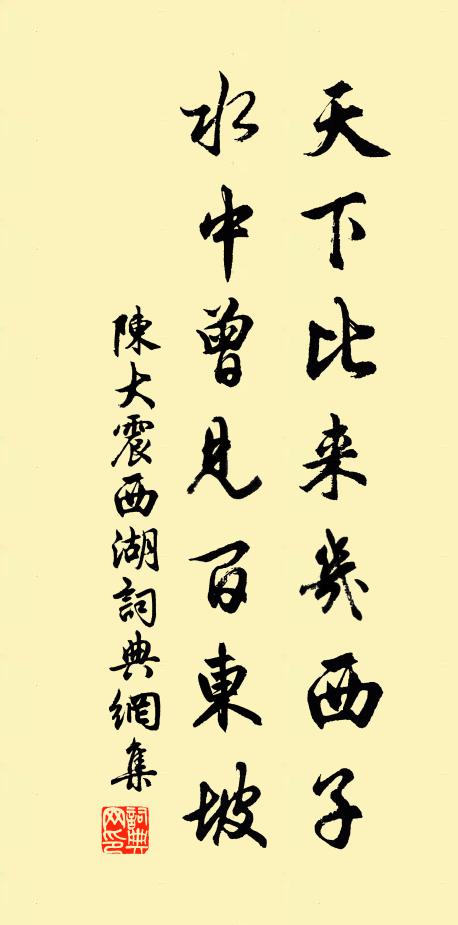 天下比来幾西子
水中曾見百東坡
陳大震西湖詞典網集
詞典網印